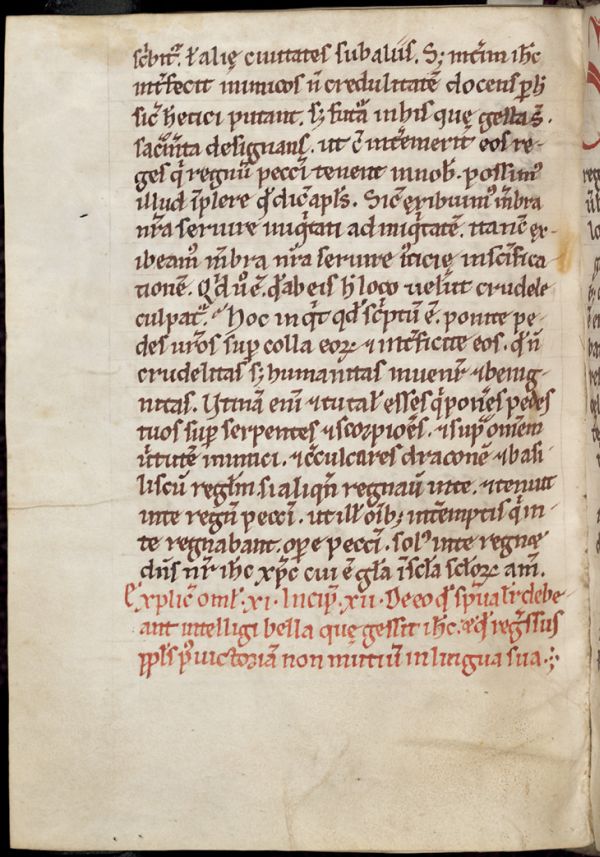 scͥbitᷣ. ł alię ciuitates sub aliis. S; int̃im ih̃c
int̃fecit inimicos ñ credulitatẽ docens ꝑ h̃
sic̃ h̃etici putant. s; futura in his quę gesta s̃.
sac̃mĩta designans. ut c̃ int̃emerit eos re-
ges q̃ regnũ pecc̃i tenent in nob̃. possim᷒
illud ĩplere qḋ dic̃ apl̃s. Sic̃ exhibuim᷒ m̃bra
nr̃a seruire iniqͥtati ad iniqͥtatẽ. ita nc̃ ex-
ibeam᷒ m̃bra nr̃a seruire iusticię in sc̃ifica
tionẽ. Qͥd ũ ẽ. qḋ ab eis h̃ loco uelut crudele
culpatᷣ. Hoc inqͥt qd̃ sc̃ptũ ẽ. ponite pe-
des ur̃os suꝑ colla eoꝝ ⁊ int̃ficite eos. qͥ ñ
crudelitas s; humanitas inuenitᷣ ⁊ benig-
nitas. Utinã eni᷒ ⁊ tu tal̃ esses q̃ pon̄es pedes
tuos suꝑ serpentes ⁊ scorpiões. ⁊ suꝑ omẽm
ũtutẽ inimici. ⁊ ↄculcares draconẽ ⁊ basi
liscũ regl̃m si aliqñ regnauit in te. ⁊ tenuit
in te regñ pecc̃i. ut ill̃ om̃ib; int̃emptis q̃ in
te regnabant. oꝑe pecc̃i. sol᷒ in te regnet
dñs nr̃ ih̃c xp̃c cui ẽ gl̃a ĩ sc̃la sc̃loꝝ am̃.
Explic̃ oml̃. xi. Incip̃. xii. De eo qḋ sp̃ualit᷑ debe
ant intelligi bella quę gessit ih̃c. ⁊ qḋ reg̃ssus
ppl̃s p᷒ uictoriã non mutiuit lingua sua.